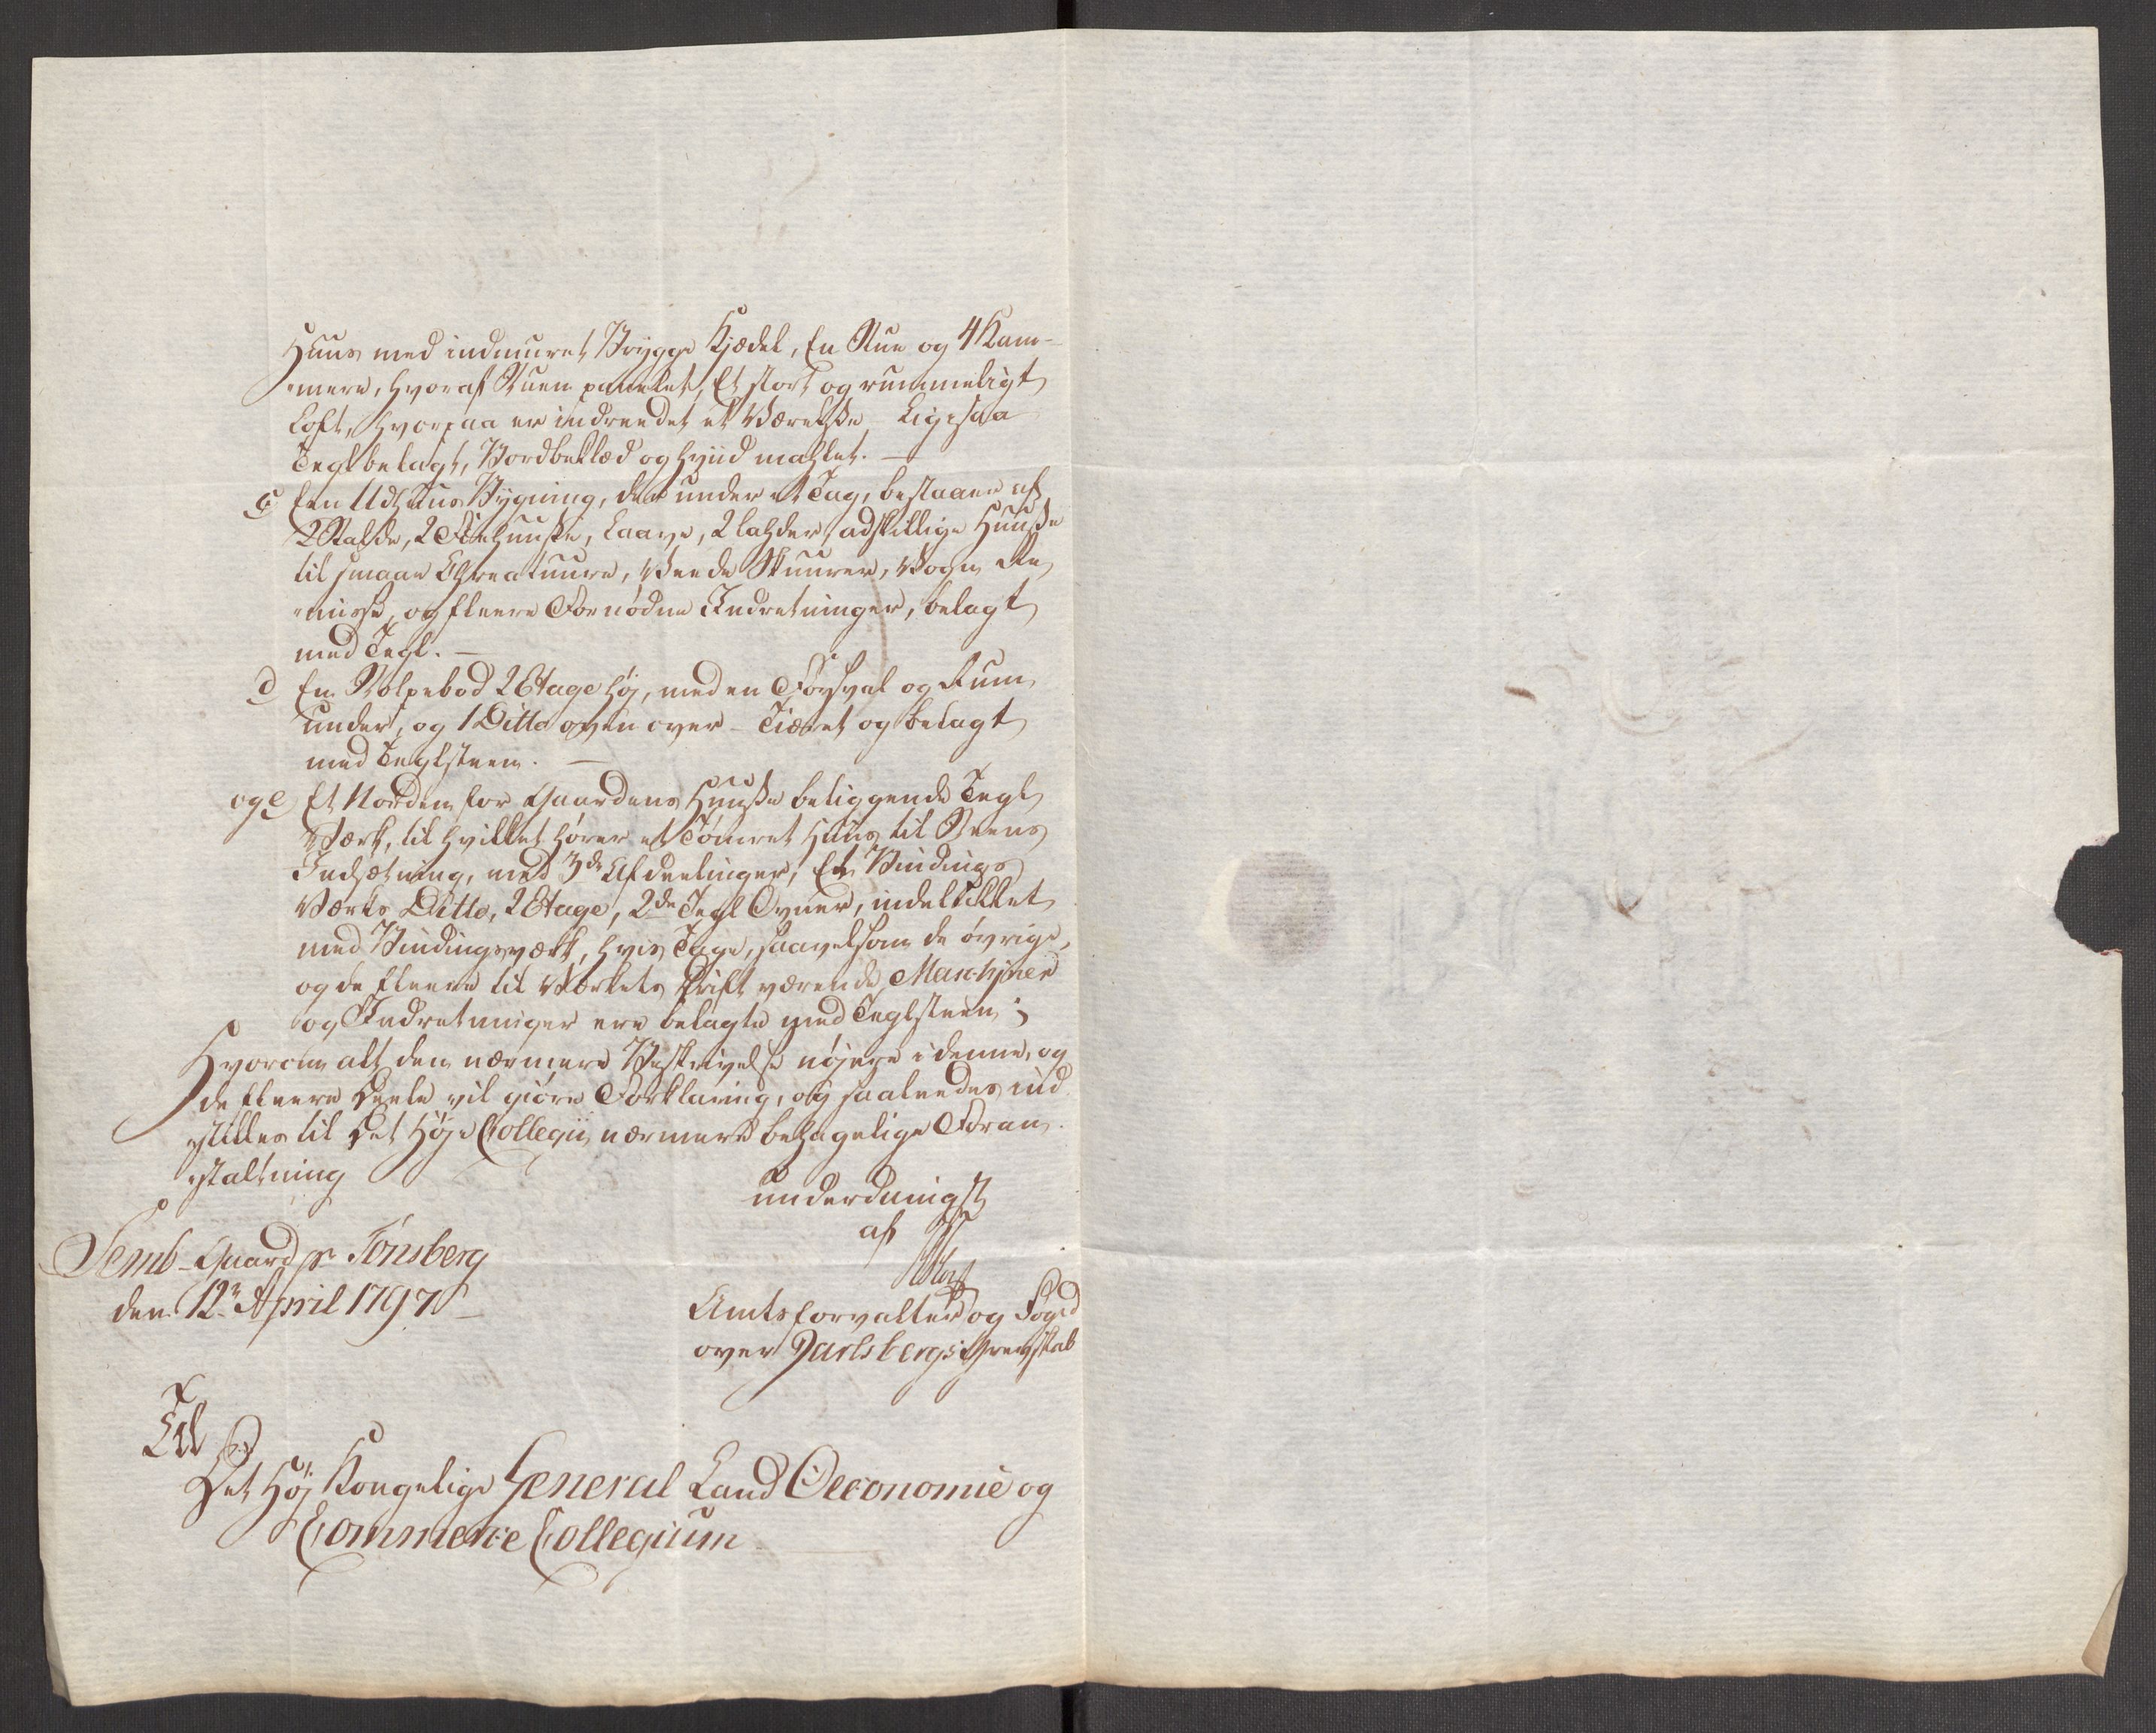 Huus med indmuret Brygge Kjedel, En Stue og 4 Kam-
mere, hvoraf Stuen panelet, Et stort og rummeligt
Loft, hvorpaa er indreedet et Værelsse Ligesaa
Teglbelagt, Bordbeklæd og hviid mahlet. —
c Een Udhuus Bygning, der under et Tag, bestaaer af
2 Stalde, 2 Fæehuusse, Laave, 2 Lahder, adskillige Huusse
til smaae Chreatuure, Veede Skuurer, Vogn Re,
misse, og fleere Fornødne Indretninger, belagt
med Tegl. —
d En Stolpebod 2 Etage høj, med en Forsval og Rum
under, og 1 Ditto oven over - Tiæret og belagt
med Teglsteen. —
og e Et Norden for Gaardens Huusse beliggende Tegl
Værk, til hvilket hører et Tømret Huus til Steens
Indsætning, med 3de Afdeelinger, Et Bindings
Værks Ditto, 2 Etage, 2de Tegl Ovner, indelukket
med Bindingsværk, hvis Tage, saavelsom de øvrige,
og de fleere til Værkets Drift værende Maschiner
og Indretninger ere belagte med Teglsteen;
Hvorom alt den nærmere Beskrivelse nøjere i denne, og
de fleere Deele vil giøre Forklaring, og saaleedes ind
stilles til Det Høje Collegii nærmere behagelige Foran
staltning
underdanigst
af
Semb-Gaard pr Tönsberg
den 12te April 1797
Amtsforvalter og Foged
over Jarlsbergs Grevskab
Til
Det Høj Kongelige General Land Oeconomie og
Commerce Collegium